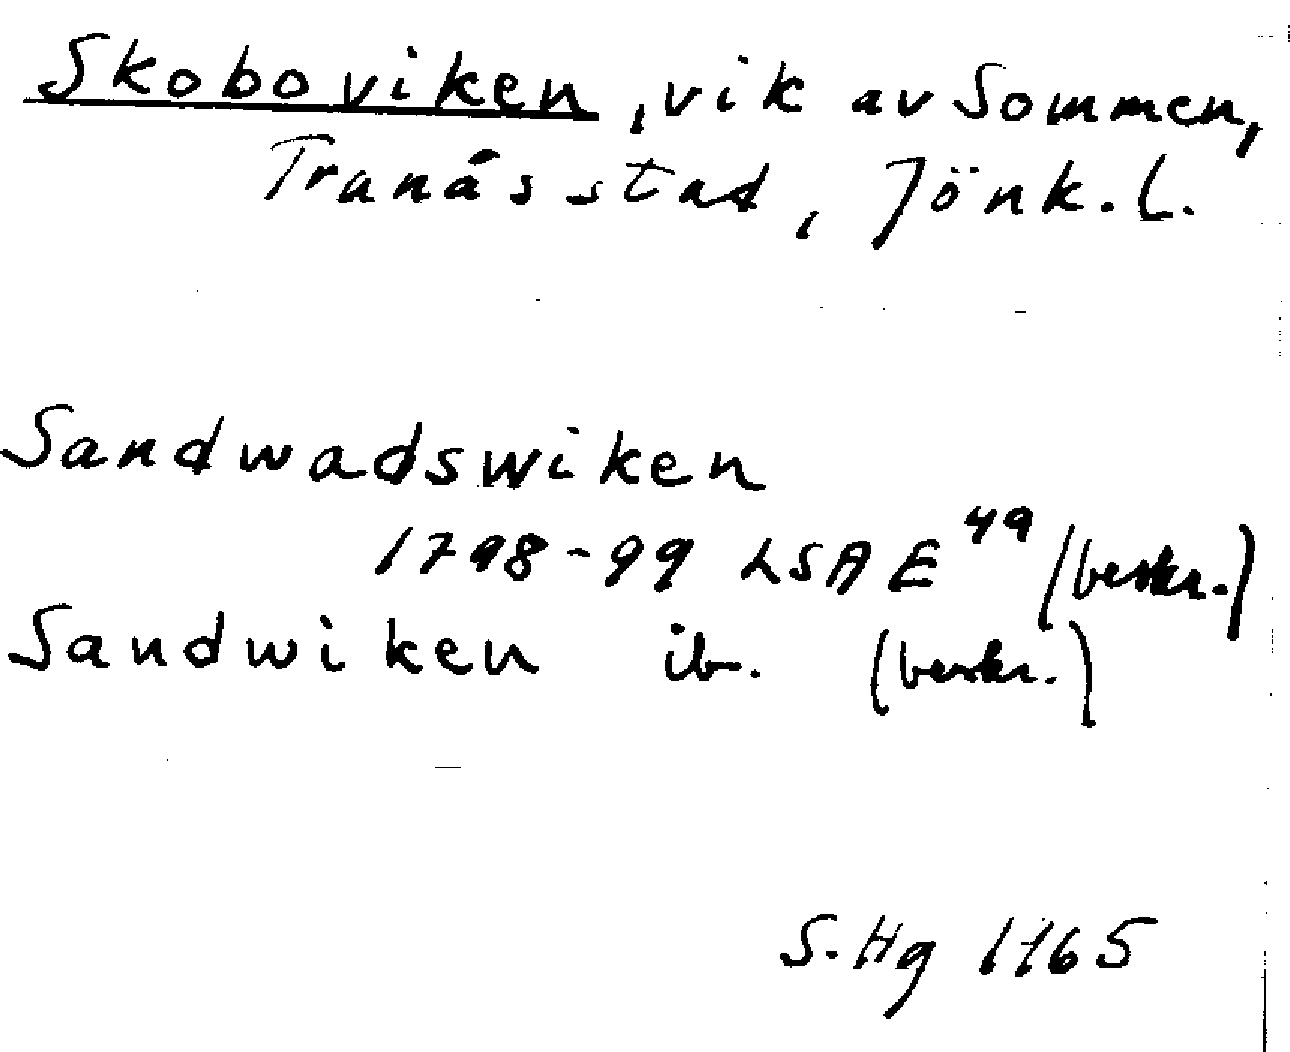 Skoboviken, vik av Sommen,
Tranås stad, Jönk. l.
Sandwadswiken
1798-99 LSA E 49 (beskr.)
Sandwiken ib. (beskr.)
S. Hg 1965